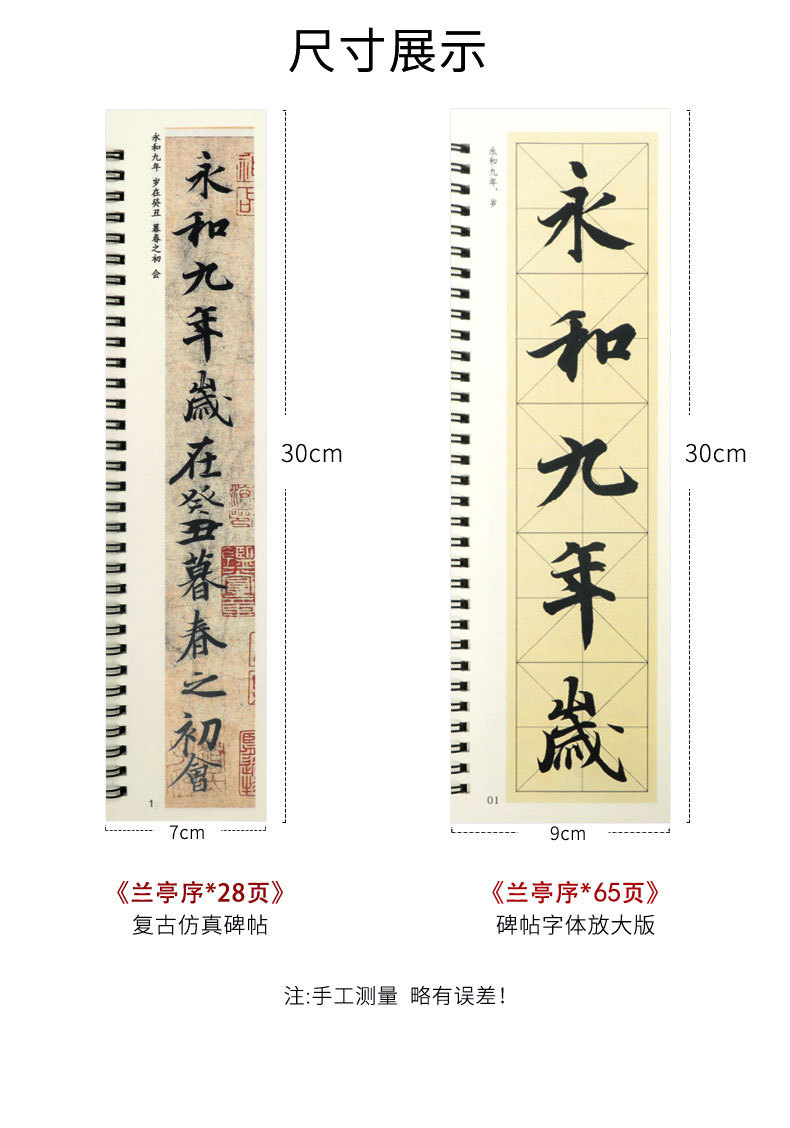 尺寸展示
永和九年 岁在癸丑 暮春之初 会
永和九年歲在癸丑暮春之初會
1
30cm
7cm
永和九年，岁
永和九年歲
01
30cm
9cm
《兰亭序*28页》
复古仿真碑帖
《兰亭序*65页》
碑帖字体放大版
注:手工测量 略有误差！